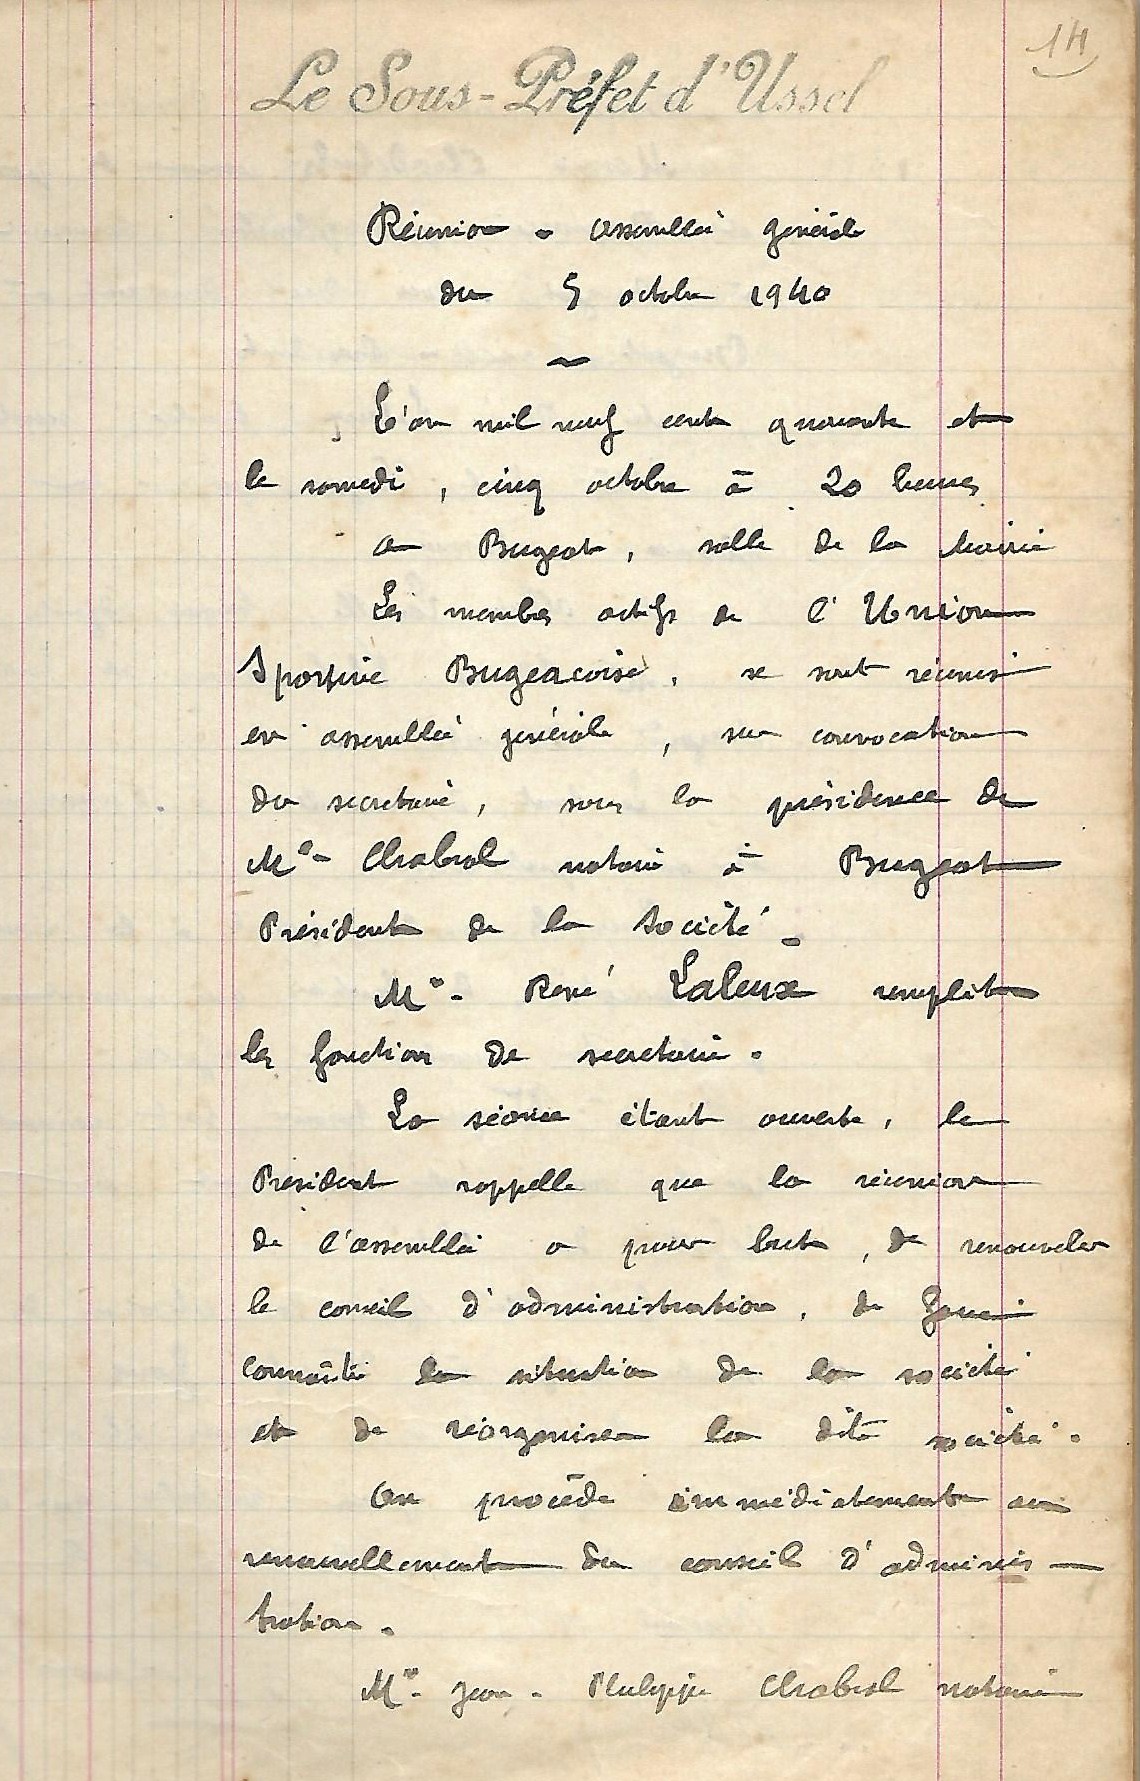 14
Le Sous-Préfet d'Ussel
Réunion - assemblée générale
du 5 octobre 1940
L'an mil neuf cent quarante et
le samedi, cinq octobre à 20 heures
a Bugeat, salle de la Mairie
Les membres actifs de l'Union
Sportive Bugeacoise, se sont réunis
en assemblée générale, sur convocation
du secretaire, sous la présidence de
Me- Chabrol notaire à Bugeat
Président de la Société -
Mr- René Laleux remplit
les fonction de secretaire.
La séance étant ouverte, le
President rappelle que la réunion
de l'assemblée a pour but, de renouveler
le conseil d'administration, de faire
connaître la situation de la société
et de réorganiser la dite société.
On procède immédiatement au
renouvellement du conseil d'adminis-
tration.
Mr- Jean-Philippe Chabrol notaire